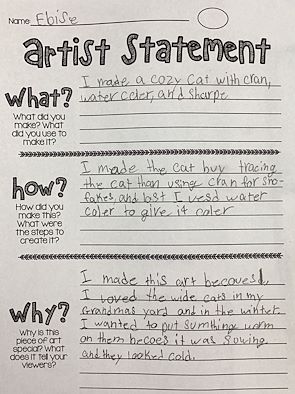 Name: Eloise
artist Statement
What?
What did you
make? What
did you use to
make it?
I made a cozy cat with cran,
water coler, and sharpe
how?
How did you
make this?
What were
the steps to
create it?
I made the cat buy tracing
the cat than using cran for sno-
fakes, and last I uesd water
coler to give it coler
Why?
Why is this
piece of art
special? What
does it tell your
viewers?
I made this art becoues
I loved the wide cats in my
Grandmas yard and in the winter
I wanted to put sumthing worm
on them becoes it was sowing
and they looked cold.